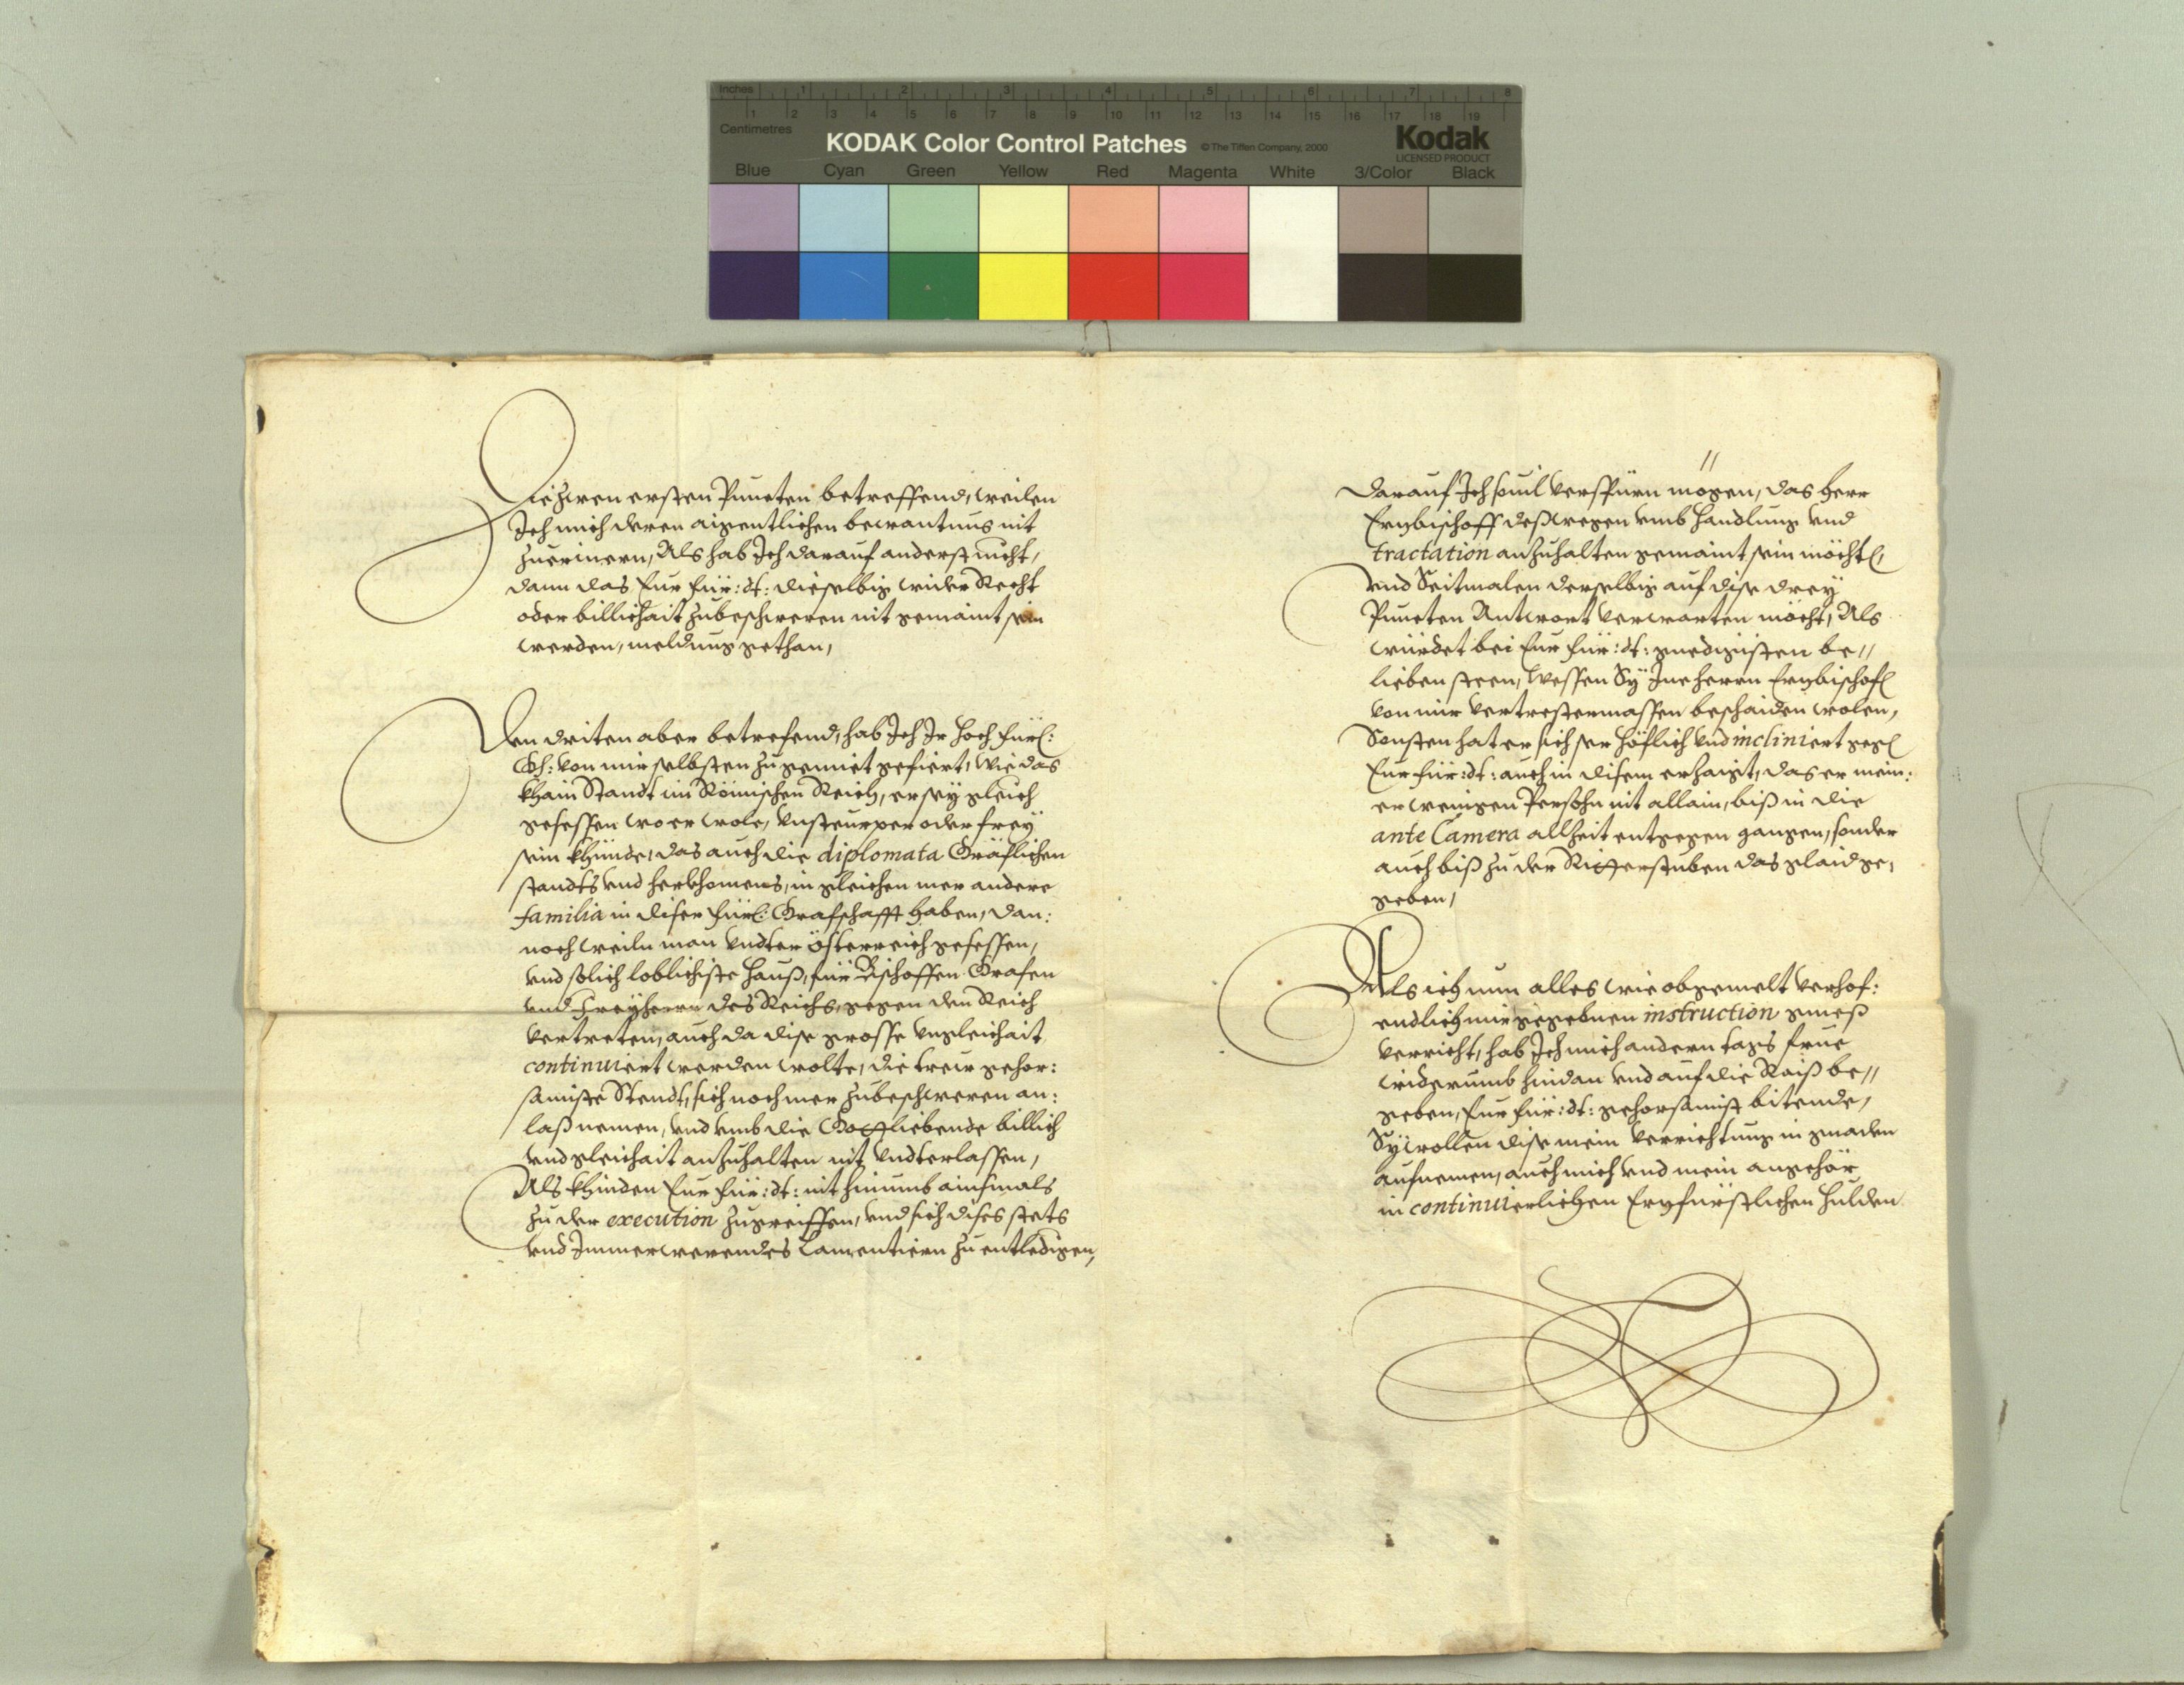 Inches 1 2 3 4 5 6 7 8
1 2 3 4 5 6 7 8 9 10 11 12 13 14 15 16 17 18 19
Centimetres
KODAK Color Control Patches © The Tiffen Company, 2000 Kodak
LICENSED PRODUCT
Blue Cyan Green Yellow Red Magenta White 3/Color Black
Die zwen ersten Puncten betreffend, weilen
Ich mich deren aigentlichen bewantnus nit
zuerinern, Als hab Ich darauf anderst nicht,
dann das Eur Für: dt: dieselbig wider Recht
oder billichait zubeschweren nit gemaint sein
werden, meldung gethan,
Den driten aber betrefend, hab Ich Ir Hoch Fürl:
Gh: von mir selbsten zu gemiet gefiert, wie das
khain Standt im Römischen Reich, er sey gleich
gesessen wo er wole, vnsteurper oder frey
sein khünde, das auch die diplomata Gräflichen
standts vnd herkhomens, in gleichen mer andere
familia in diser Fürl: Grafschafft haben, dan:
noch weiln man vndter Österreich gesessen,
vnd solich loblichiste Hauß, für Bischoffen Grafen
vnd Freyherrn des Reichs, gegen den Reich
vertreten, auch da dise grosse vngleichait
continuiert werden wolte, die treu gehor:
samiste Stendt, sich noch mer zubeschweren an:
laß nemen, vnd vmb die Gottliebende billich
vnd gleichait anzuhalten nit vndterlassen,
Als khinden Eur Für: dt: nit hinumb ainsmals
zu der execution zugreiffen, vnd sich dises stets
vnd Immerwerendes Lamentiern zu entledigen,
Darauf Ich souil verspürn mögen, das Herr
Erzbischoff deßwegen vmb Handlung vnd
tractation anzuhalten gemaint sein möcht,
vnd Seitmalen derselbig auf dise drey
Puncten Antwort verwarten möcht, Als
würdet bei Eur Für: dt: gnedigisten be//
lieben steen, wessen Sy Ine Herrn Erzbischof
von mir vertrestermassen beschaiden wolen,
Sonsten hat er sich ser höflich vnd incliniert gegen
Eur Für: dt: auch in disem erhaigt, das er mein:
er wenigen Persohn nit allain, biß in die
ante Camera allzeit entgegen gangen, sonder
auch biß zu der Ritterstuben das glaid ge,
geben,
Als ich nun alles wie obgemelt verhof:
endlich mir gegebnen instruction gmeß
verricht, hab Ich mich andern tags frue
widerumb hindan vnd auf die Raiß be//
geben, Eur Für: dt: gehorsamist bitende,
Sy wollen dise mein verrichtung in gnaden
aufnemen, auch mich vnd mein angehör
in continuierlichen Erzfürstlichen Hulden